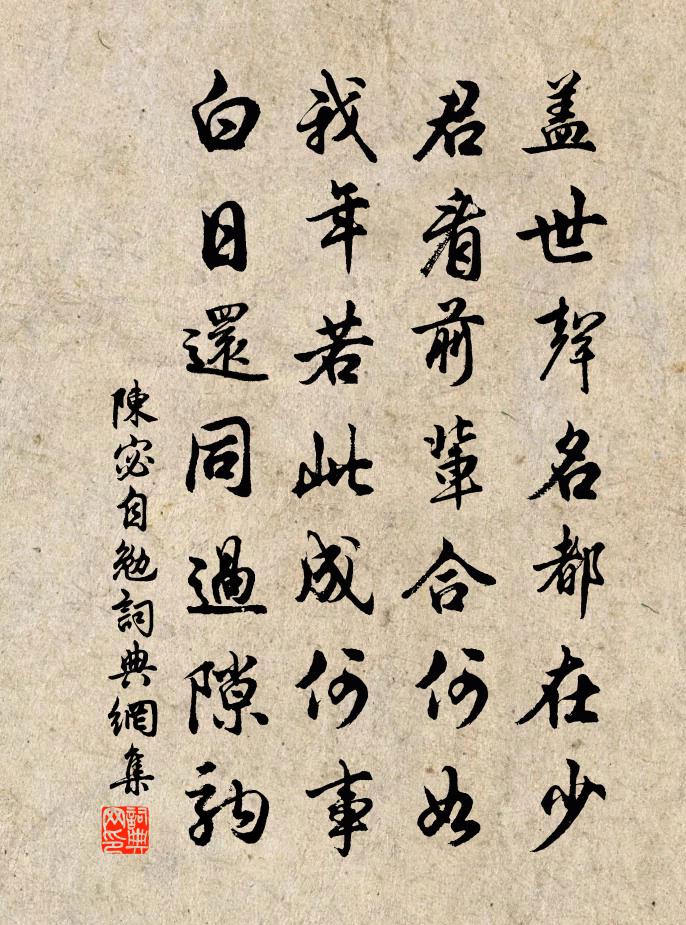 盖世聲名都在少
君看前輩合何如
我年若此成何事
白日還同過隙駒
陳宓自勉詞典網集
詞典网印